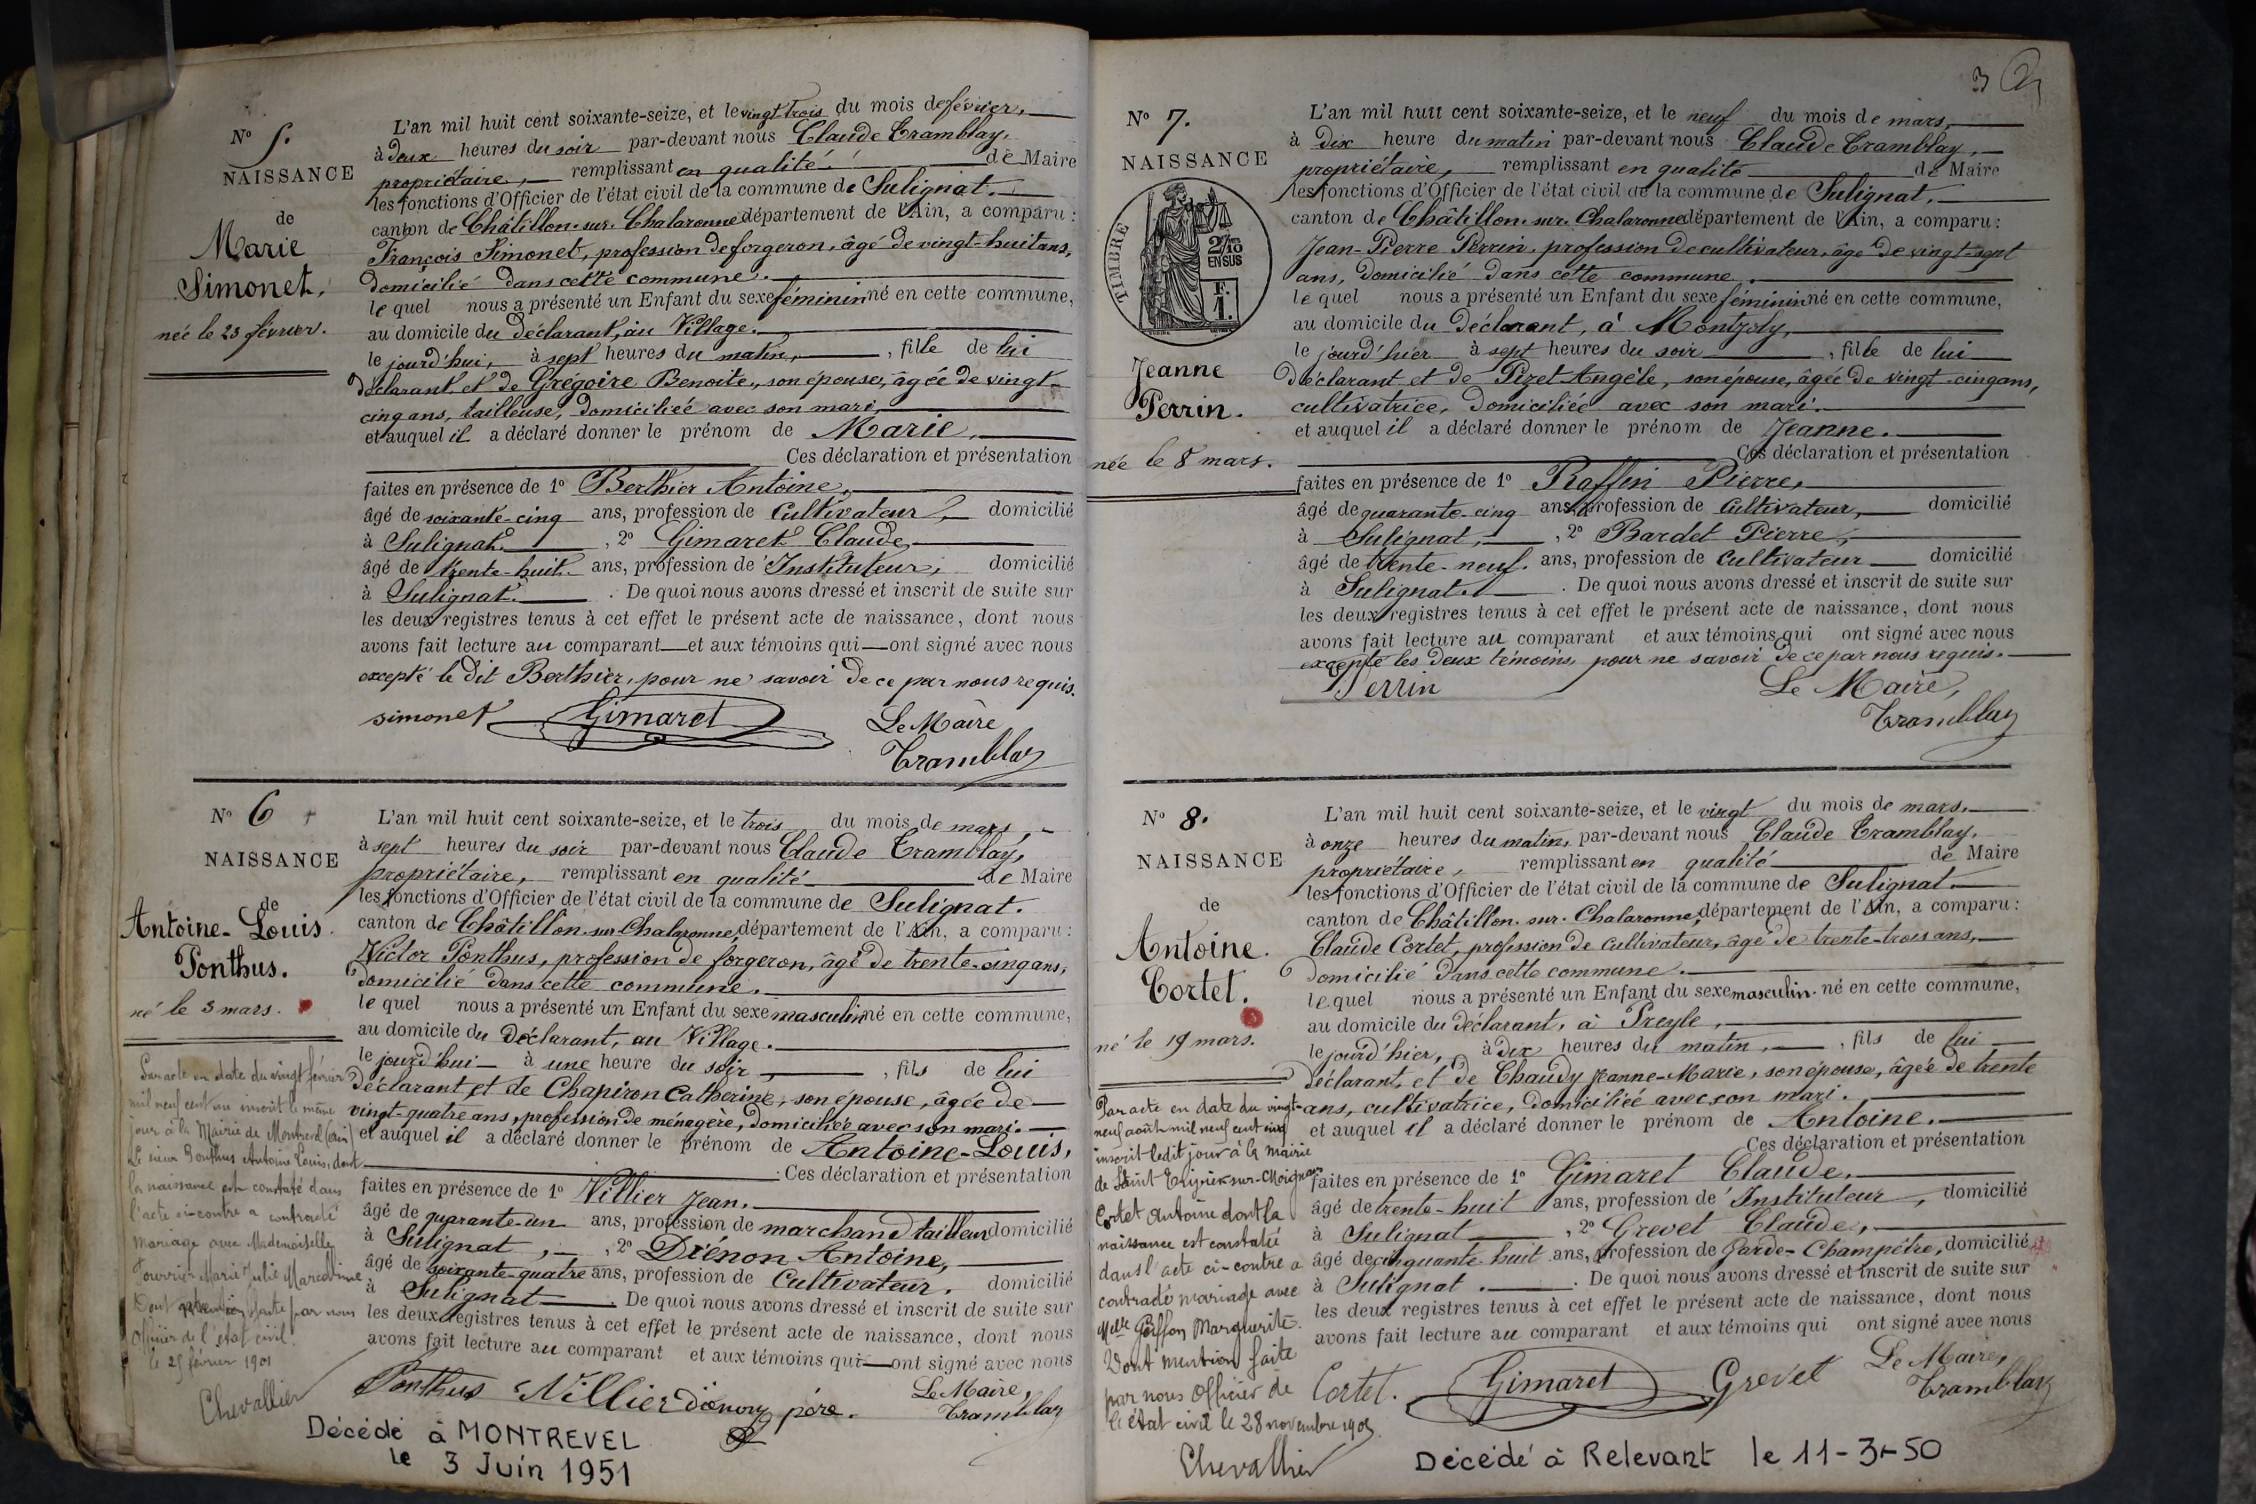 N° 5.
NAISSANCE
de
Marie
Simonet,
née le 23 février.
L'an mil huit cent soixante-seize, et le vingt trois du mois de février,
à deux heures du soir par-devant nous Claude Tramblay,
propriétaire, remplissant en qualité de Maire
les fonctions d'Officier de l'état civil de la commune de Sulignat.
canton de Châtillon-sur-Chalaronne département de l'Ain, a comparu :
François Simonet, profession de forgeron, âgé de vingt-huit ans,
domicilié dans cette commune.
le quel nous a présenté un Enfant du sexe féminin né en cette commune,
au domicile du déclarant, au Village.
le jourd'hui, à sept heures du matin, , fille de lui
déclarant et de Grégoire Benoite, son épouse, âgée de vingt-
cinq ans, tailleuse, domiciliée avec son mari,
et auquel il a déclaré donner le prénom de Marie,
Ces déclaration et présentation
faites en présence de 1° Berthier Antoine,
âgé de soixante-cinq ans, profession de Cultivateur, domicilié
à Sulignat. , 2° Gimaret Claude,
âgé de trente-huit ans, profession de Instituteur, domicilié
à Sulignat. . De quoi nous avons dressé et inscrit de suite sur
les deux registres tenus à cet effet le présent acte de naissance, dont nous
avons fait lecture au comparant et aux témoins qui ont signé avec nous
excepté le dit Berthier, pour ne savoir de ce par nous requis.
simonet Gimaret Le Maire
Tramblay
N° 6
NAISSANCE
de
Antoine-Louis
Ponthus.
né le 3 mars.
Par acte en date du vingt février
mil neuf cent un inscrit le même
jour à la Mairie de Montrevel (Ain)
Le sieur Ponthus Antoine Louis, dont
la naissance est constaté dans
l'acte ci-contre a contracté
mariage avec Mademoiselle
Marie Julie
Dont mention faite par nous
Officier de l'état civil
le 25 février 1901
Chevallier
L'an mil huit cent soixante-seize, et le trois du mois de mars,
à sept heures du soir par-devant nous Claude Tramblay,
propriétaire, remplissant en qualité de Maire
les fonctions d'Officier de l'état civil de la commune de Sulignat.
canton de Châtillon-sur-Chalaronne département de l'Ain, a comparu :
Victor Ponthus, profession de forgeron, âgé de trente-cinq ans,
domicilié dans cette commune.
le quel nous a présenté un Enfant du sexe masculin né en cette commune,
au domicile du Déclarant, au Village.
le jourd'hui à une heure du soir , fils de lui
déclarant et de Chapiron Catherine, son épouse, âgée de
vingt-quatre ans, profession de ménagère, domiciliée avec son mari.
et auquel il a déclaré donner le prénom de Antoine-Louis,
Ces déclaration et présentation
faites en présence de 1° Villier Jean.
âgé de quarante-un ans, profession de marchand tailleur domicilié
à Sulignat, , 2° Diénon Antoine,
âgé de soixante-quatre ans, profession de Cultivateur. domicilié
à Sulignat . De quoi nous avons dressé et inscrit de suite sur
les deux registres tenus à cet effet le présent acte de naissance, dont nous
avons fait lecture au comparant et aux témoins qui ont signé avec nous
Ponthus Villier diénon père. Le Maire,
Tramblay
Décédé à MONTREVEL
le 3 Juin 1951
3
N° 7.
NAISSANCE
TIMBRE
2/10
EN SUS
F.
1.
Jeanne
Perrin.
née le 8 mars.
L'an mil huit cent soixante-seize, et le neuf du mois de mars,
à dix heure du matin par-devant nous Claude Tramblay,
propriétaire, remplissant en qualité de Maire
les fonctions d'Officier de l'état civil de la commune de Sulignat.
canton de Châtillon-sur-Chalaronne département de l'Ain, a comparu :
Jean-Pierre Perrin, profession de cultivateur, âgé de vingt-sept
ans, domicilié dans cette commune.
le quel nous a présenté un Enfant du sexe féminin né en cette commune,
au domicile du déclarant, à Montzoly,
le jourd'hier à sept heures du soir , fille de lui
déclarant et de Pizet Angèle, son épouse, âgée de vingt-cinq ans,
cultivatrice, domiciliée avec son mari.
et auquel il a déclaré donner le prénom de Jeanne.
Ces déclaration et présentation
faites en présence de 1° Raffin Pierre,
âgé de quarante-cinq ans, profession de Cultivateur, domicilié
à Sulignat, , 2° Bardet Pierre,
âgé de trente-neuf. ans, profession de Cultivateur domicilié
à Sulignat. . De quoi nous avons dressé et inscrit de suite sur
les deux registres tenus à cet effet le présent acte de naissance, dont nous
avons fait lecture au comparant et aux témoins qui ont signé avec nous
excepté les deux témoins, pour ne savoir de ce par nous requis.
Perrin Le Maire,
Tramblay
N° 8.
NAISSANCE
de
Antoine.
Cortet.
né le 19 mars.
Par acte en date du vingt-
neuf août mil neuf cent cinq
inscrit ledit jour à la Mairie
de Saint Trivier-sur-Moignans
Cortet Antoine dont la
naissance est constatée
dans l'acte ci-contre a
contracté mariage avec
Melle Goiffon Marguerite.
Dont mention faite
par nous Officier de
l'état civil le 28 novembre 1905
Chevallier
L'an mil huit cent soixante-seize, et le vingt du mois de mars.
à onze heures du matin, par-devant nous Claude Tramblay.
propriétaire, remplissant en qualité de Maire
les fonctions d'Officier de l'état civil de la commune de Sulignat.
canton de Châtillon-sur-Chalaronne, département de l'Ain, a comparu :
Claude Cortet, profession de Cultivateur, âgé de trente-trois ans,
domicilié dans cette commune.
le quel nous a présenté un Enfant du sexe masculin né en cette commune,
au domicile du déclarant, à Preyle,
le jourd'hier, à dix heures du matin, , fils de lui
déclarant, et de Chaudy Jeanne-Marie, son épouse, âgée de trente
ans, cultivatrice, domiciliée avec son mari.
et auquel il a déclaré donner le prénom de Antoine.
Ces déclaration et présentation
faites en présence de 1° Gimaret Claude,
âgé de trente-huit ans, profession de Instituteur, domicilié
à Sulignat , 2° Grevet Claude,
âgé de cinquante huit ans, profession de Garde-Champêtre, domicilié
à Sulignat . De quoi nous avons dressé et inscrit de suite sur
les deux registres tenus à cet effet le présent acte de naissance, dont nous
avons fait lecture au comparant et aux témoins qui ont signé avec nous
Cortet. Gimaret Grevet Le Maire,
Tramblay
Décédé à Relevant le 11-3-50